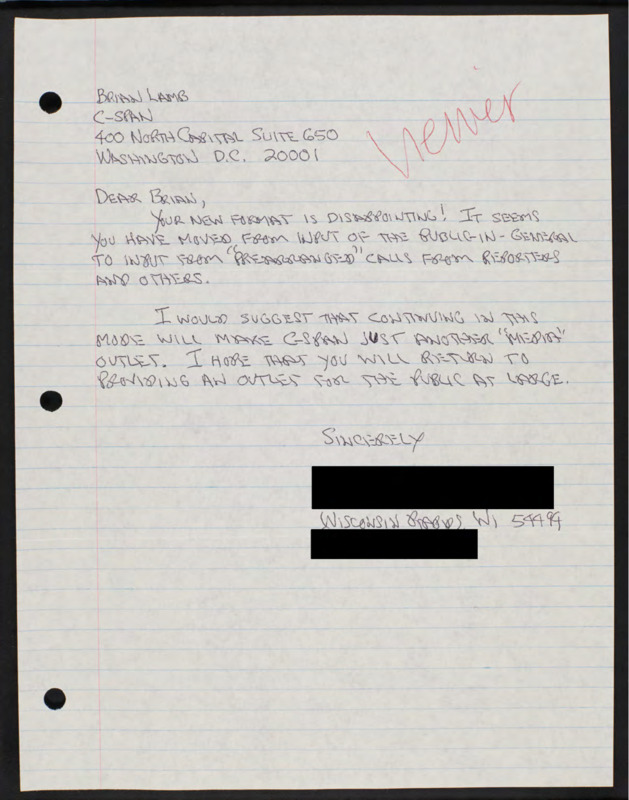 BRIAN LAMB
C-SPAN
400 NORTH CAPITAL SUITE 650
WASHINGTON D.C. 20001
viewer
DEAR BRIAN,
YOUR NEW FORMAT IS DISAPPOINTING! IT SEEMS
YOU HAVE MOVED FROM INPUT OF THE PUBLIC-IN-GENERAL
TO INPUT FROM "PREARRANGED" CALLS FROM REPORTERS
AND OTHERS.
I WOULD SUGGEST THAT CONTINUING IN THIS
MODE WILL MAKE C-SPAN JUST ANOTHER "MEDIA"
OUTLET. I HOPE THAT YOU WILL RETURN TO
PROVIDING AN OUTLET FOR THE PUBLIC AT LARGE.
SINCERELY
WISCONSIN RAPIDS, WI 54494